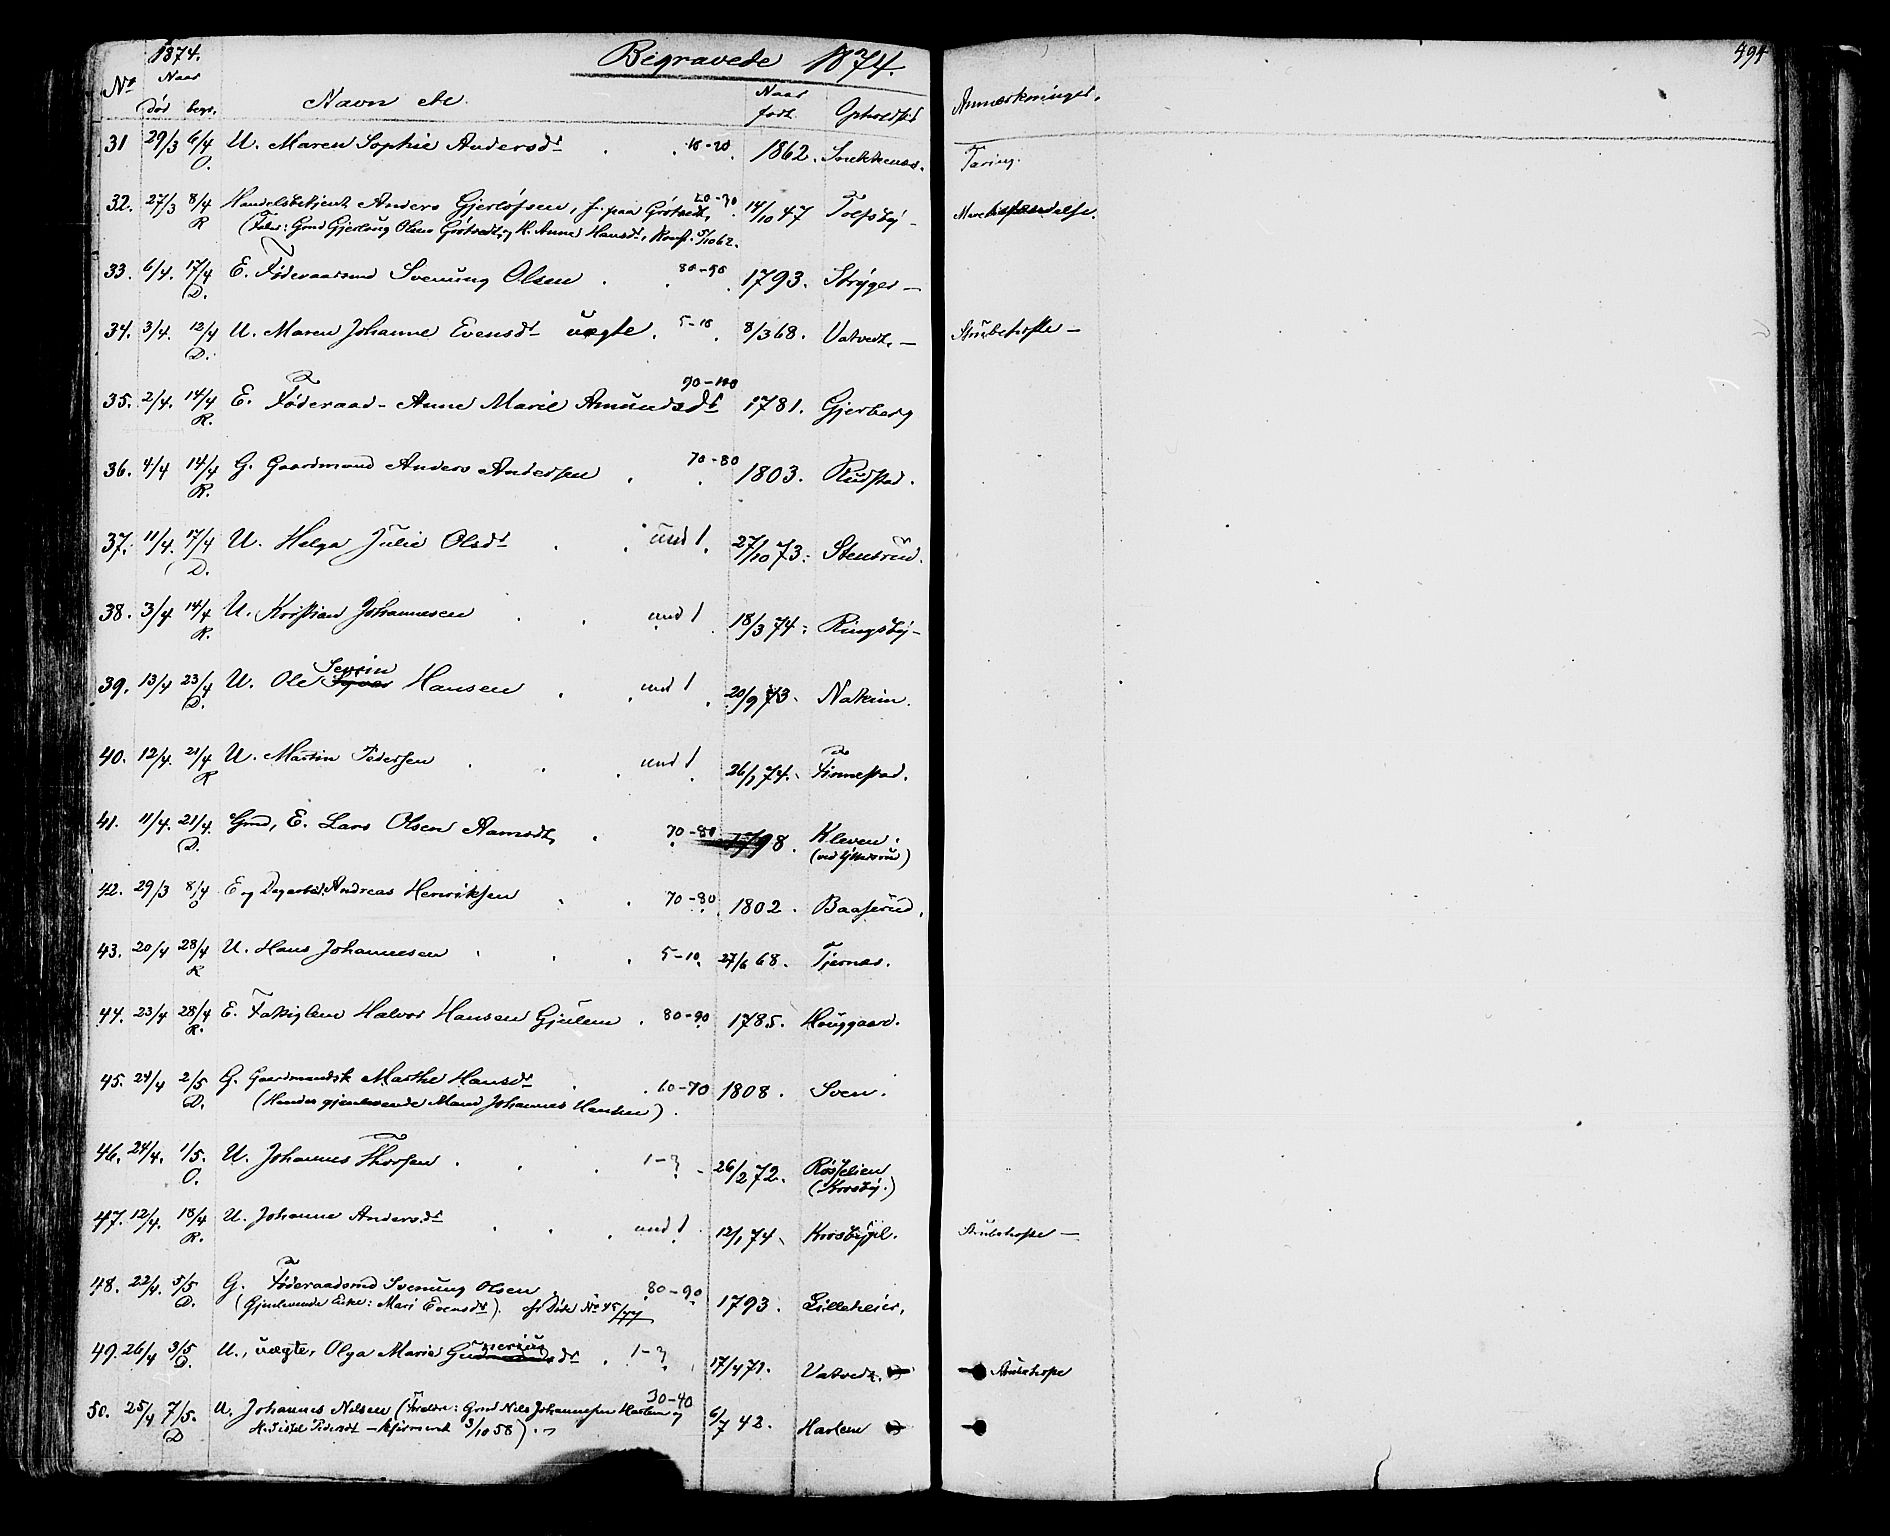 1874.
Begravede 1874.
494
No
Naar
død begr.
Navn etc.
Naar
født.
Opholdsst
Anmærkninger.
31 29/3 6/4 U. Maren Sophie Andersdt 10-20 1862. Snekkenæs. Tæring.
O.
32. 27/3 8/4 Handelsbetjent Anders Gjerløfsen, f. paa Grøtvedt, 20-30 14/10 47 Tofsbÿ-
R (Foræ: Gmd Gjerløug Olsen Grøtvedt og K. Anne Hansdt, Konf. 5/10 62.
33. 6/4. 17/4 E. Føderaadsmd Svenung Olsen 80-90 1793. Strÿger-
D.
34. 3/4. 12/4 U. Maren Johanne Evensdt uægte. 5-10 8/3 68. Vatvedt.- Strubehoste-
D.
35. 2/4. 14/4 E. Føderaad- Anne Marie Amundsdt 90-100 1781. Gjerberg
R.
36. 4/4 14/4 G. Gaardmand Anders Andersen 70-80 1803. Rudstad.
R.
37. 11/4. 17/4 U. Helga Julie Olsdt und 1. 27/10 73. Stensrud.
D.
38. 3/4 14/4 U. Kristian Johannesen und 1 18/3 74. Ringsbÿ-
R.
Severin
39. 13/4 23/4 U. Ole Hansen und 1 20/9 73. Nakim.
D.
40. 12/4. 21/4 U. Martin Pedersen und 1 26/1 74. Finnestad.
R
41. 11/4. 21/4. Gmd, E. Lars Olsen Aamodt, 70-80 1798. Kleven.
D. (ved )
42. 29/3 8/4 E og Dagarbd. Andreas Henriksen 70-80 1802. Baaserud.
O
43. 20/4 28/4 U. Hans Johannesen 5-10. 27/6 68. Tjernæs.
R
44. 23/4 28/4 E. Fattiglem Halvor Hansen Gjulem. 80-90 1785. Houggaard.
R.
45. 24/4 2/5 G. Gaardmandsk Marthe Hansdt 60-70 1808. Sven.
D. (Hendes gjenlevende Mand Johannes Hansen).
46. 24/4. 1/5. U. Johannes Thorsen. 1-3 26/2 72. Røsselien
O. (Korsbÿ.)
47. 12/4. 18/4 U. Johanne Andersdt und 1. 12/1 74. Korsbÿgd. Strubehoste-
R.
48. 22/4. 5/5 G. Føderaadsmd Svenung Olsen 80-90 1793. Lilleheier.
D. (Gjenlevende Enke: Mari Evensdt).
49. 26/4 3/5 U., uægte, Olga Marie 1-3 17/4 71. Vatvedt. Strubehoste
D.
50. 25/4 7/5. U. Johannes Nilsen (Forældre: Gmd Nils Johannesen Harlem og 30-40 6/7 42. Harlem
D K. Sissel Pedersdt - konfirmeret 3/10 58).